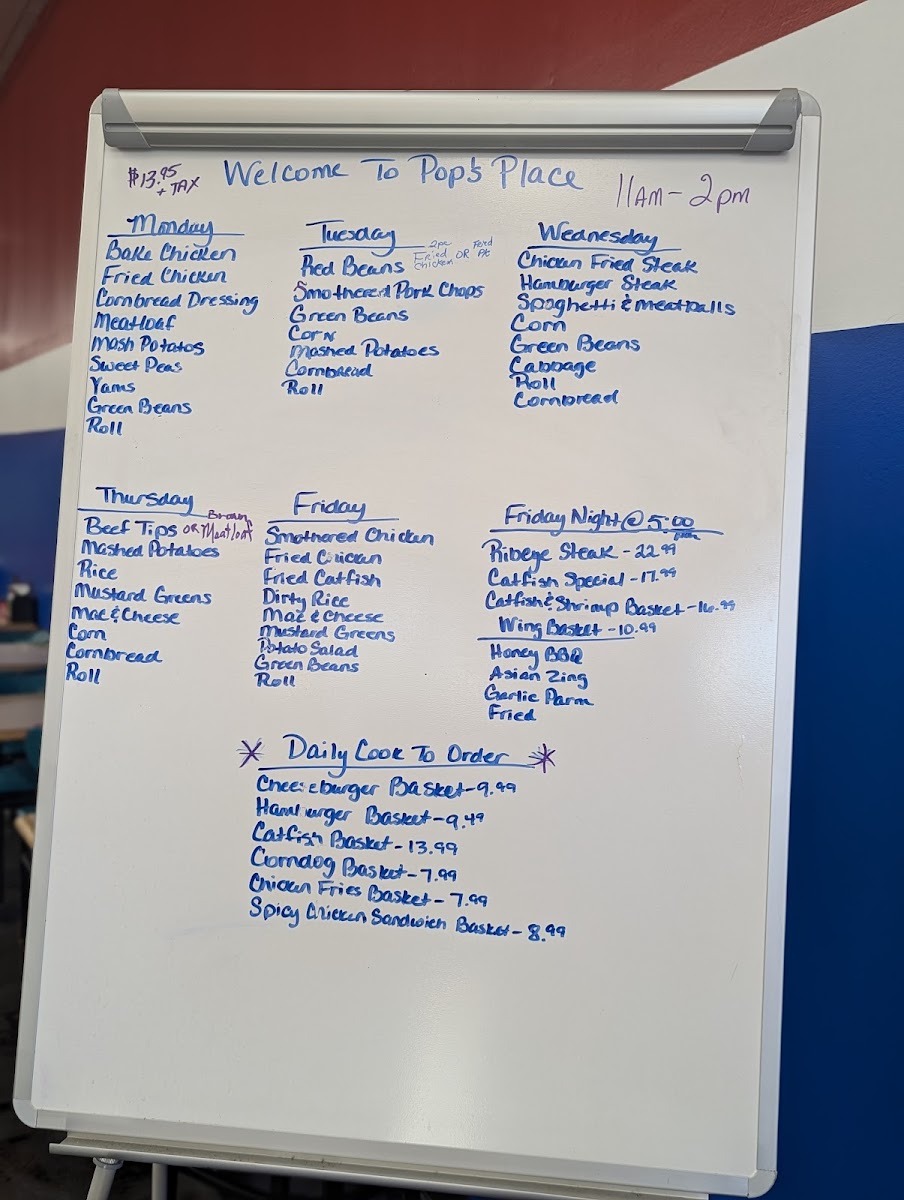 $13.95
+ TAX
Welcome To Pop's Place
11AM - 2pm
Monday
Bake Chicken
Fried Chicken
Cornbread Dressing
Meatloaf
Mash Potatos
Sweet Peas
Yams
Green Beans
Roll
Tuesday
Red Beans
2pc
Fried
Chicken
OR
Smothered Pork Chops
Green Beans
Corn
Mashed Potatoes
Cornbread
Roll
Wednesday
Chicken Fried Steak
Hamburger Steak
Spaghetti & Meatballs
Corn
Green Beans
Cabbage
Roll
Cornbread
Thursday
Beef Tips OR Brown Meatloaf
Mashed Potatoes
Rice
Mustard Greens
Mac & Cheese
Corn
Cornbread
Roll
Friday
Smothered Chicken
Fried Chicken
Fried Catfish
Dirty Rice
Mac & Cheese
Mustard Greens
Potato Salad
Green Beans
Roll
Friday Night @ 5:00
Ribeye Steak - 22.99
Catfish Special - 17.99
Catfish & Shrimp Basket - 16.99
Wing Basket - 10.99
Honey BBQ
Asian Zing
Garlic Parm
Fried
* Daily Cook To Order *
Cheeseburger Basket - 9.99
Hamburger Basket - 9.49
Catfish Basket - 13.99
Corndog Basket - 7.99
Chicken Fries Basket - 7.99
Spicy Chicken Sandwich Basket - 8.99